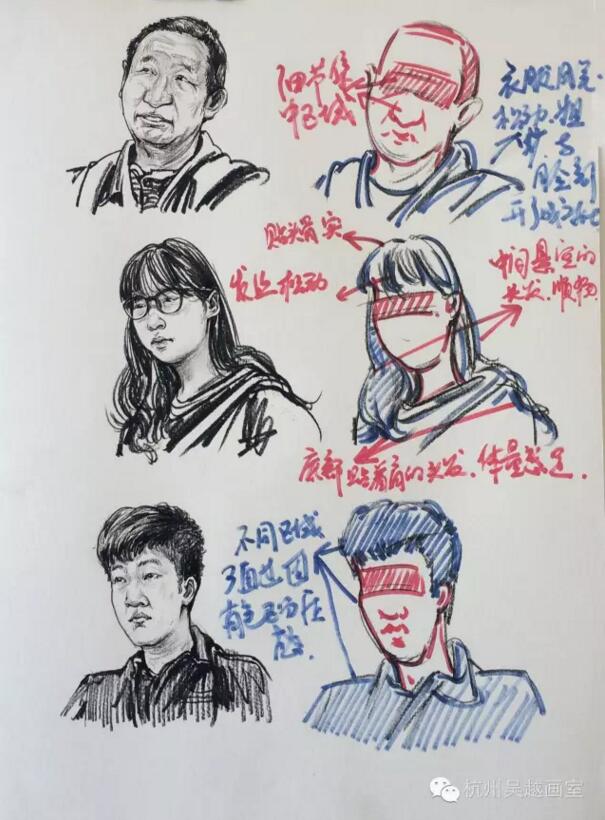 细节集
中区域
衣服用笔
松动.粗
犷与
脸部
形成对比
贴头骨实
发丝松动
中间悬空的
头发.顺物
底部贴着肩的头发.体量感足.
不同区域
可通过固
有色区分层
次.
杭州吴越画室